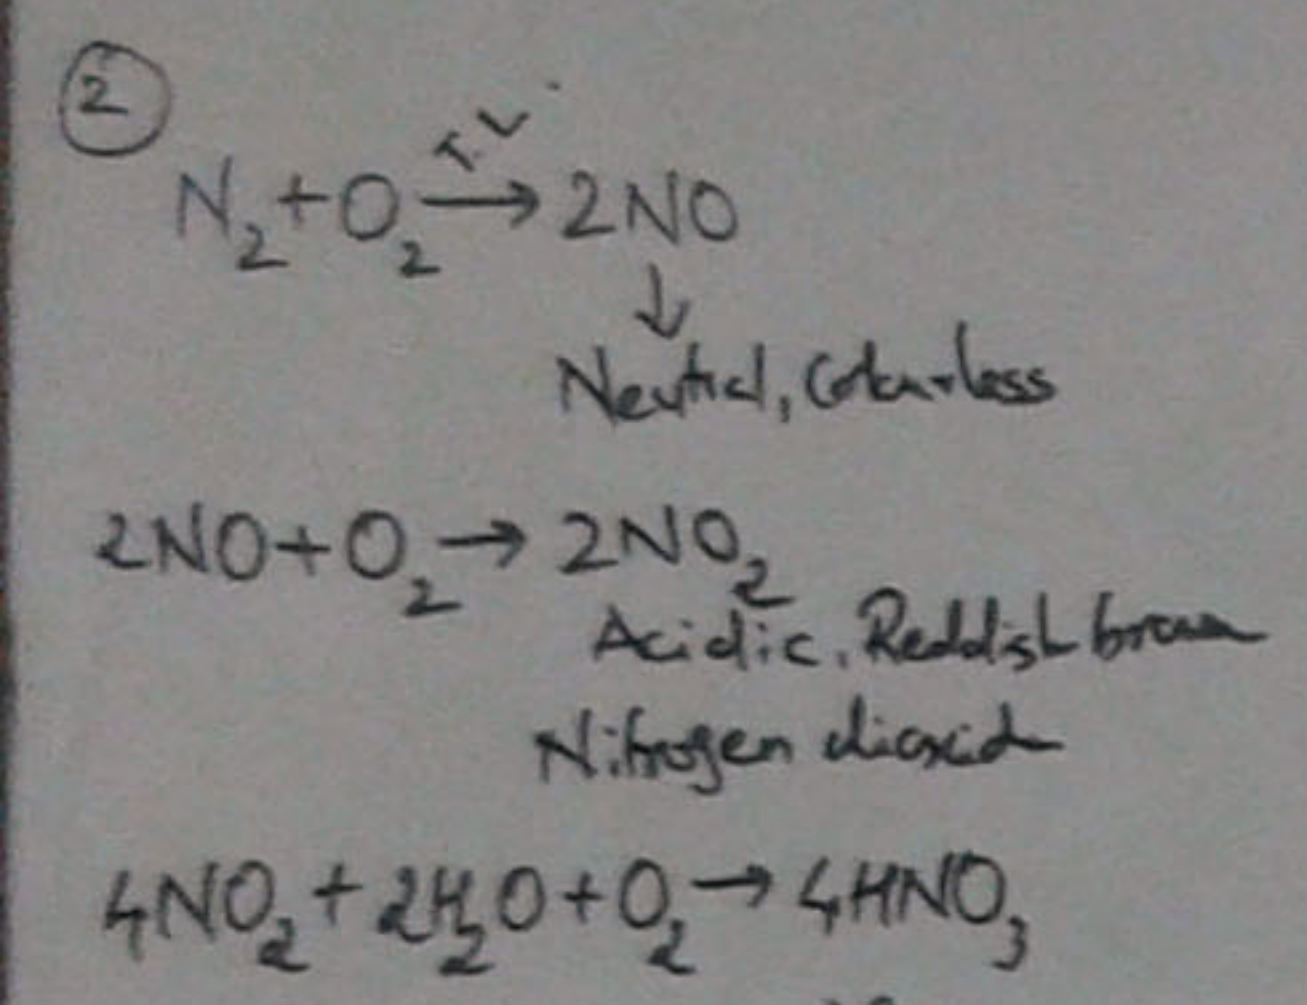 2
T.L.
N₂+O₂→2NO
↓
Neutral, Colourless
2NO+O₂→2NO₂
Acidic, Reddish brown
Nitrogen dioxid
4NO₂+2H₂O+O₂→4HNO₃